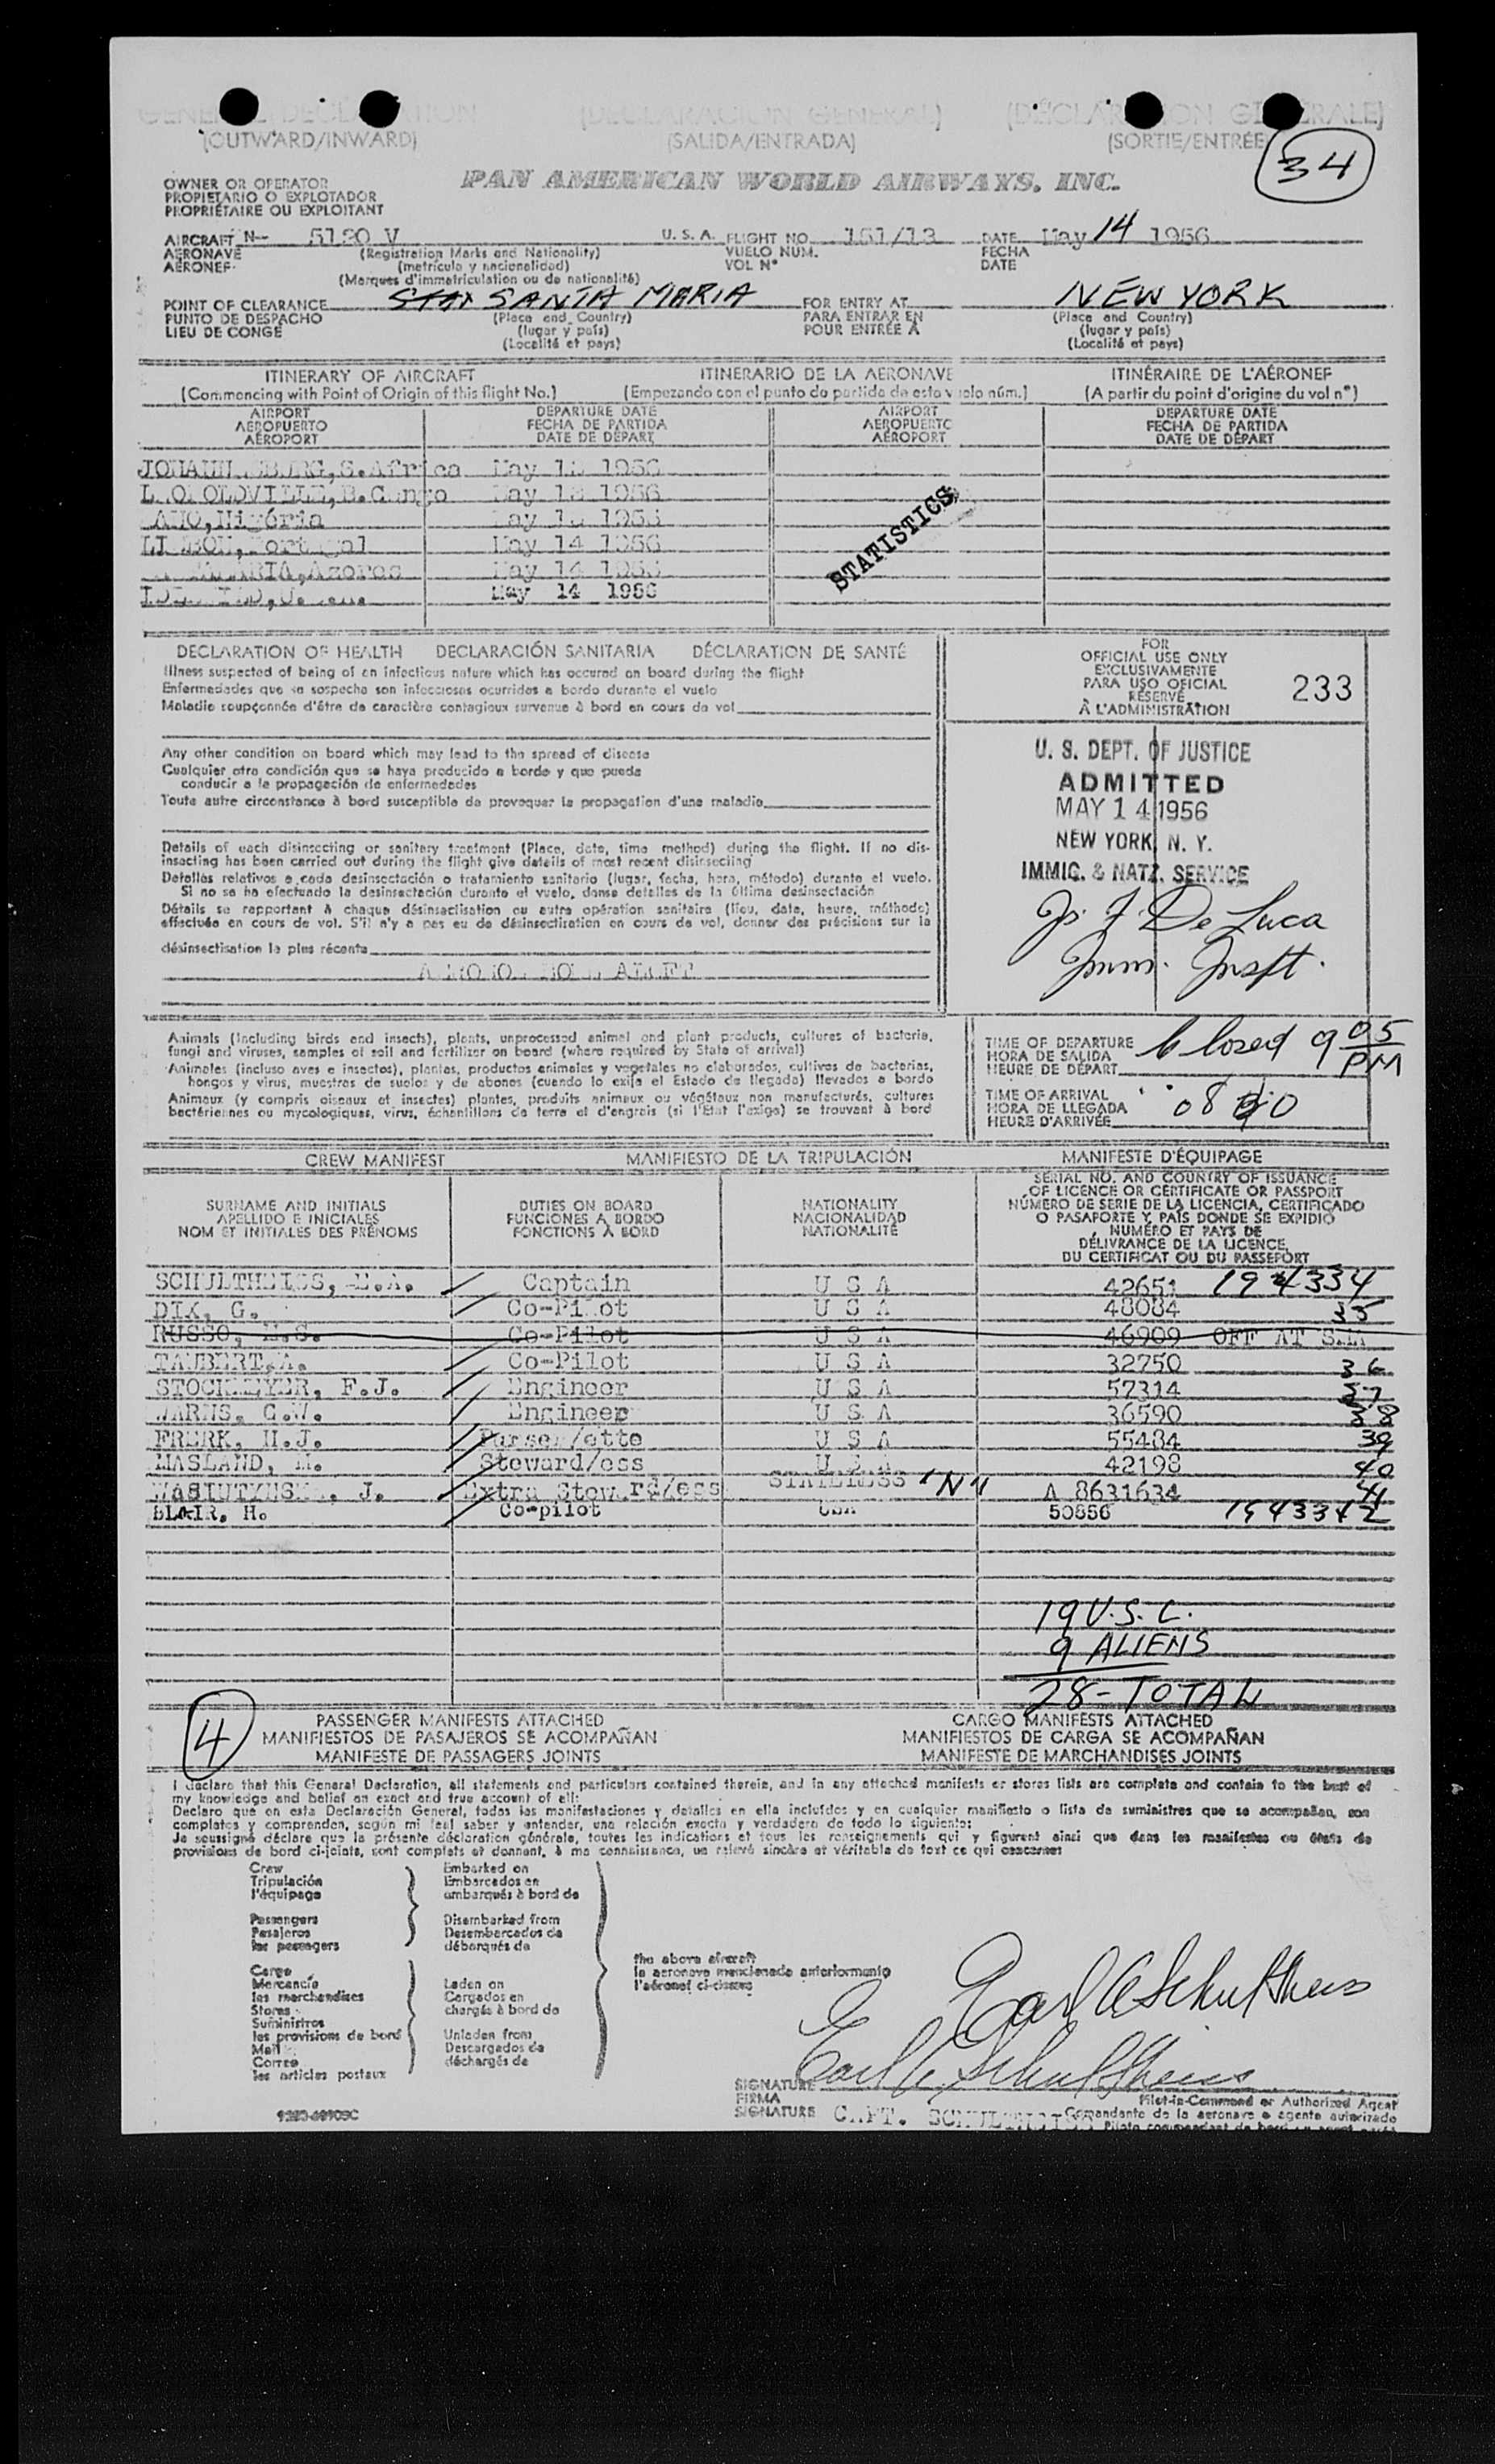 GENERAL DECLARATION (DECLARACION GENERAL) (DÉCLARATION GÉNÉRALE)
(OUTWARD/INWARD) (SALIDA/ENTRADA) (SORTIE/ENTRÉE)
34
OWNER OR OPERATOR
PROPIETARIO O EXPLOTADOR
PROPRIÉTAIRE OU EXPLOITANT
PAN AMERICAN WORLD AIRWAYS, INC.
AIRCRAFT N- 5120 V U. S. A. FLIGHT NO. 151/13 DATE May 14 1956
AERONAVE (Registration Marks and Nationality) VUELO NUM. FECHA
AÉRONEF (matrícula y nacionalidad) VOL Nº DATE
(Marques d'immatriculation ou de nationalité)
POINT OF CLEARANCE SANTA MARIA FOR ENTRY AT NEW YORK
PUNTO DE DESPACHO (Place and Country) PARA ENTRAR EN (Place and Country)
LIEU DE CONGÉ (lugar y país) POUR ENTRÉE À (lugar y país)
(Localité et pays) (Localité et pays)
ITINERARY OF AIRCRAFT ITINERARIO DE LA AERONAVE ITINÉRAIRE DE L'AÉRONEF
(Commencing with Point of Origin of this flight No.) (Empezando con el punto de partida de este vuelo núm.) (A partir du point d'origine du vol nº)
AIRPORT DEPARTURE DATE AIRPORT DEPARTURE DATE
AEROPUERTO FECHA DE PARTIDA AEROPUERTO FECHA DE PARTIDA
AÉROPORT DATE DE DÉPART AÉROPORT DATE DE DÉPART
S.Africa May 1956
B.Congo May 1956
May 1956
May 14 1956
Azores May 14 1956
May 14 1956
STATISTICS
DECLARATION OF HEALTH DECLARACIÓN SANITARIA DÉCLARATION DE SANTÉ
Illness suspected of being of an infectious nature which has occured on board during the flight
Enfermedades que se sospecha son infecciosas ocurridas a bordo durante el vuelo
Maladie soupçonnée d'être de caractère contagieux survenue à bord en cours de vol
FOR
OFFICIAL USE ONLY
EXCLUSIVAMENTE
PARA USO OFICIAL
RÉSERVÉ
À L'ADMINISTRATION
233
Any other condition on board which may lead to the spread of disease
Cualquier otra condición que se haya producido a bordo y que pueda
conducir a la propagación de enfermedades
Toute autre circonstance à bord susceptible de provoquer la propagation d'une maladie
U. S. DEPT. OF JUSTICE
ADMITTED
MAY 14 1956
NEW YORK, N. Y.
IMMIG. & NATZ. SERVICE
De Luca
Imm. Inspt.
Details of each disinsecting or sanitary treatment (Place, date, time method) during the flight. If no dis-
insecting has been carried out during the flight give details of most recent disinsecting
Detalles relativos a cada desinsectación o tratamiento sanitario (lugar, fecha, hora, método) durante el vuelo.
Si no se ha efectuado la desinsectación durante el vuelo, danse detalles de la última desinsectación
Détails se rapportant à chaque désinsectisation ou autre opération sanitaire (lieu, date, heure, méthode)
effectuée en cours de vol. S'il n'y a pas eu de désinsectisation en cours de vol, donner des précisions sur la
désinsectisation la plus récente
Animals (including birds and insects), plants, unprocessed animal and plant products, cultures of bacteria,
fungi and viruses, samples of soil and fertilizer on board (where required by State of arrival)
Animales (incluso aves e insectos), plantas, productos animales y vegetales no elaborados, cultivos de bacterias,
hongos y virus, muestras de suelos y de abonos (cuando lo exija el Estado de llegada) llevados a bordo
Animaux (y compris oiseaux et insectes) plantes, produits animaux ou végétaux non manufacturés, cultures
bactériennes ou mycologiques, virus, échantillons de terre et d'engrais (si l'État l'exige) se trouvant à bord
TIME OF DEPARTURE closed 9 05 PM
HORA DE SALIDA
HEURE DE DÉPART
TIME OF ARRIVAL
HORA DE LLEGADA
HEURE D'ARRIVÉE
CREW MANIFEST MANIFIESTO DE LA TRIPULACIÓN MANIFESTE D'ÉQUIPAGE
SURNAME AND INITIALS DUTIES ON BOARD NATIONALITY SERIAL NO. AND COUNTRY OF ISSUANCE
APELLIDO E INICIALES FUNCIONES A BORDO NACIONALIDAD OF LICENCE OR CERTIFICATE OR PASSPORT
NOM ET INITIALES DES PRÉNOMS FONCTIONS À BORD NATIONALITÉ NÚMERO DE SERIE DE LA LICENCIA, CERTIFICADO
O PASAPORTE Y PAÍS DONDE SE EXPIDIÓ
NUMÉRO ET PAYS DE
DÉLIVRANCE DE LA LICENCE,
DU CERTIFICAT OU DU PASSEPORT
SCHULTHEISS, E.A. Captain U S A 42651
DIX, G. Co-Pilot U S A 48084 35
RUSSO, Co-Pilot U S A 46909 OFF AT
TAUBERT, A. Co-Pilot U S A 32750 36
STOCKMEYER, F.J. Engineer U S A 57314 37
WARNS, C.W. Engineer U S A 36590 38
FRERK, H.J. Purser/ette U S A 55484 39
MASLAND, M. Steward/ess U S A 42198 40
J. Extra Steward/ess STATELESS "N" A 8631634 41
BLAIR, H. Co-pilot USA 50856
19 U.S.C.
9 ALIENS
28-TOTAL
4
PASSENGER MANIFESTS ATTACHED CARGO MANIFESTS ATTACHED
MANIFIESTOS DE PASAJEROS SE ACOMPAÑAN MANIFIESTOS DE CARGA SE ACOMPAÑAN
MANIFESTE DE PASSAGERS JOINTS MANIFESTE DE MARCHANDISES JOINTS
I declare that this General Declaration, all statements and particulars contained therein, and in any attached manifests or stores lists are complete and contain to the best of
my knowledge and belief an exact and true account of all:
Declaro que en esta Declaración General, todas las manifestaciones y detalles en ella incluídos y en cualquier manifiesto o lista de suministros que se acompañan, son
completos y comprenden, según mi leal saber y entender, una relación exacta y verdadera de todo lo siguiente:
Je soussigné déclare que la présente déclaration générale, toutes les indications et tous les renseignements qui y figurent ainsi que dans les manifestes ou états de
provisions de bord ci-joints, sont complets et donnent, à ma connaissance, un relevé sincère et véritable de tout ce qui concernet
Crew Embarked on
Tripulación Embarcados en
l'équipage embarqués à bord de
Passengers Disembarked from
Pasajeros Desembarcados de
les passagers débarqués de
the above aircraft
la aeronave mencionada anteriormente
l'aéronef ci-dessus
Cargo
Mercancía Laden on
les marchandises Cargados en
Stores chargés à bord de
Suministros
les provisions de bord Unladen from
Mail Descargados de
Correo déchargés de
les articles postaux
Earl A Schultheiss
Earl A Schultheiss
SIGNATURE
FIRMA Pilot-in-Command or Authorized Agent
SIGNATURE CAPT. SCHULTHEISS Comandante de la aeronave o agente autorizado